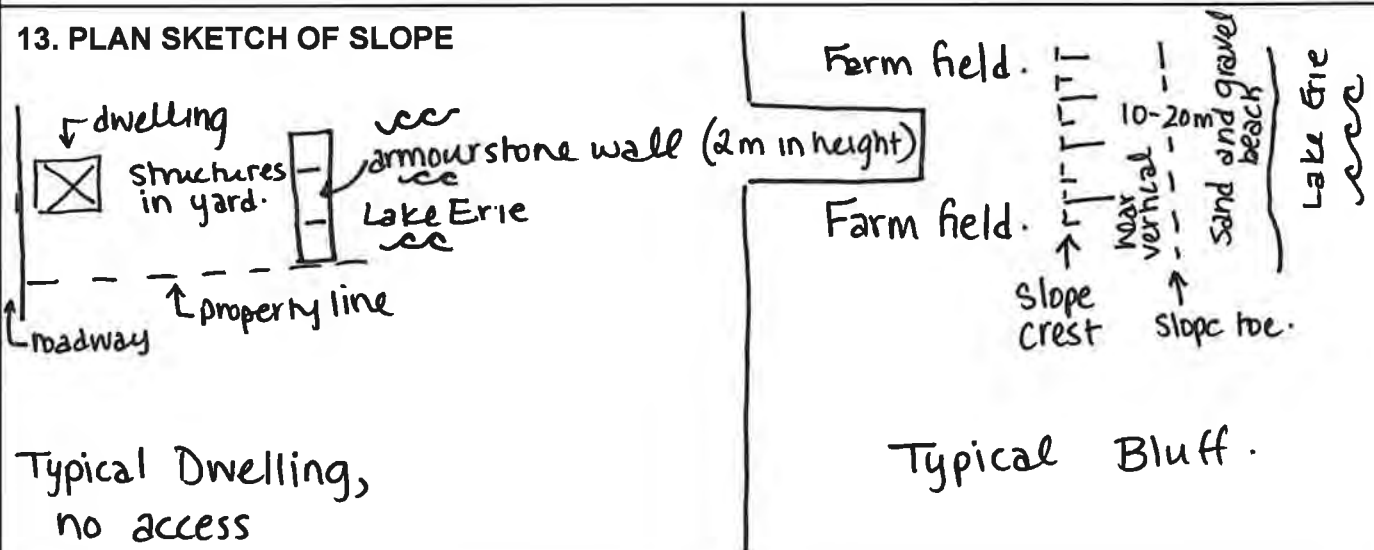 13. PLAN SKETCH OF SLOPE
dwelling
structures
in yard.
armourstone wall (2m in height)
Lake Erie
property line
roadway
Typical Dwelling,
no access
Farm field.
Farm field.
10-20m
near
vertical
Sand and gravel
beach
Lake Erie
Slope
crest
Slope toe.
Typical Bluff.